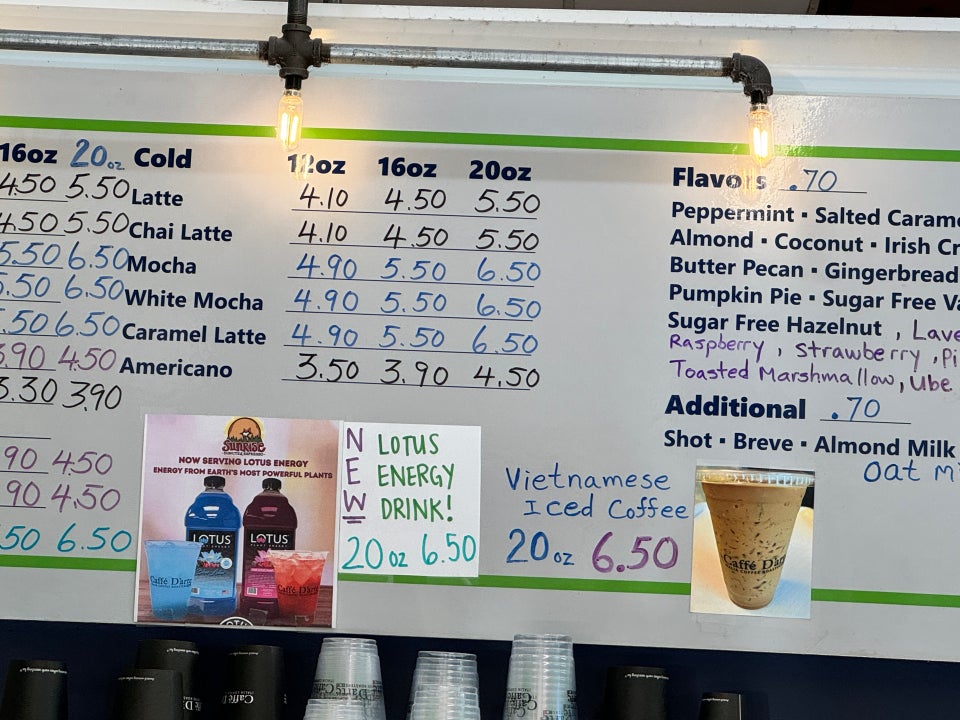 16oz 20oz Cold 12oz 16oz 20oz
4.50 5.50 Latte 4.10 4.50 5.50
4.50 5.50 Chai Latte 4.10 4.50 5.50
5.50 6.50 Mocha 4.90 5.50 6.50
.50 6.50 White Mocha 4.90 5.50 6.50
.50 6.50 Caramel Latte 4.90 5.50 6.50
3.90 4.50 Americano 3.50 3.90 4.50
3.30 3.90
90 4.50
90 4.50
50 6.50
SUNRISE
NOW SERVING LOTUS ENERGY
ENERGY FROM EARTH'S MOST POWERFUL PLANTS
LOTUS LOTUS
Caffé D'arte Caffé D'arte
NEW LOTUS
ENERGY
DRINK!
20oz 6.50
Vietnamese
Iced Coffee
20oz 6.50
Caffé D'arte
Flavors .70
Peppermint ▪ Salted Carame
Almond ▪ Coconut ▪ Irish Cr
Butter Pecan ▪ Gingerbread
Pumpkin Pie ▪ Sugar Free Va
Sugar Free Hazelnut , Lave
Raspberry , Strawberry , Pi
Toasted Marshmallow, Ube
Additional .70
Shot ▪ Breve ▪ Almond Milk
Oat M